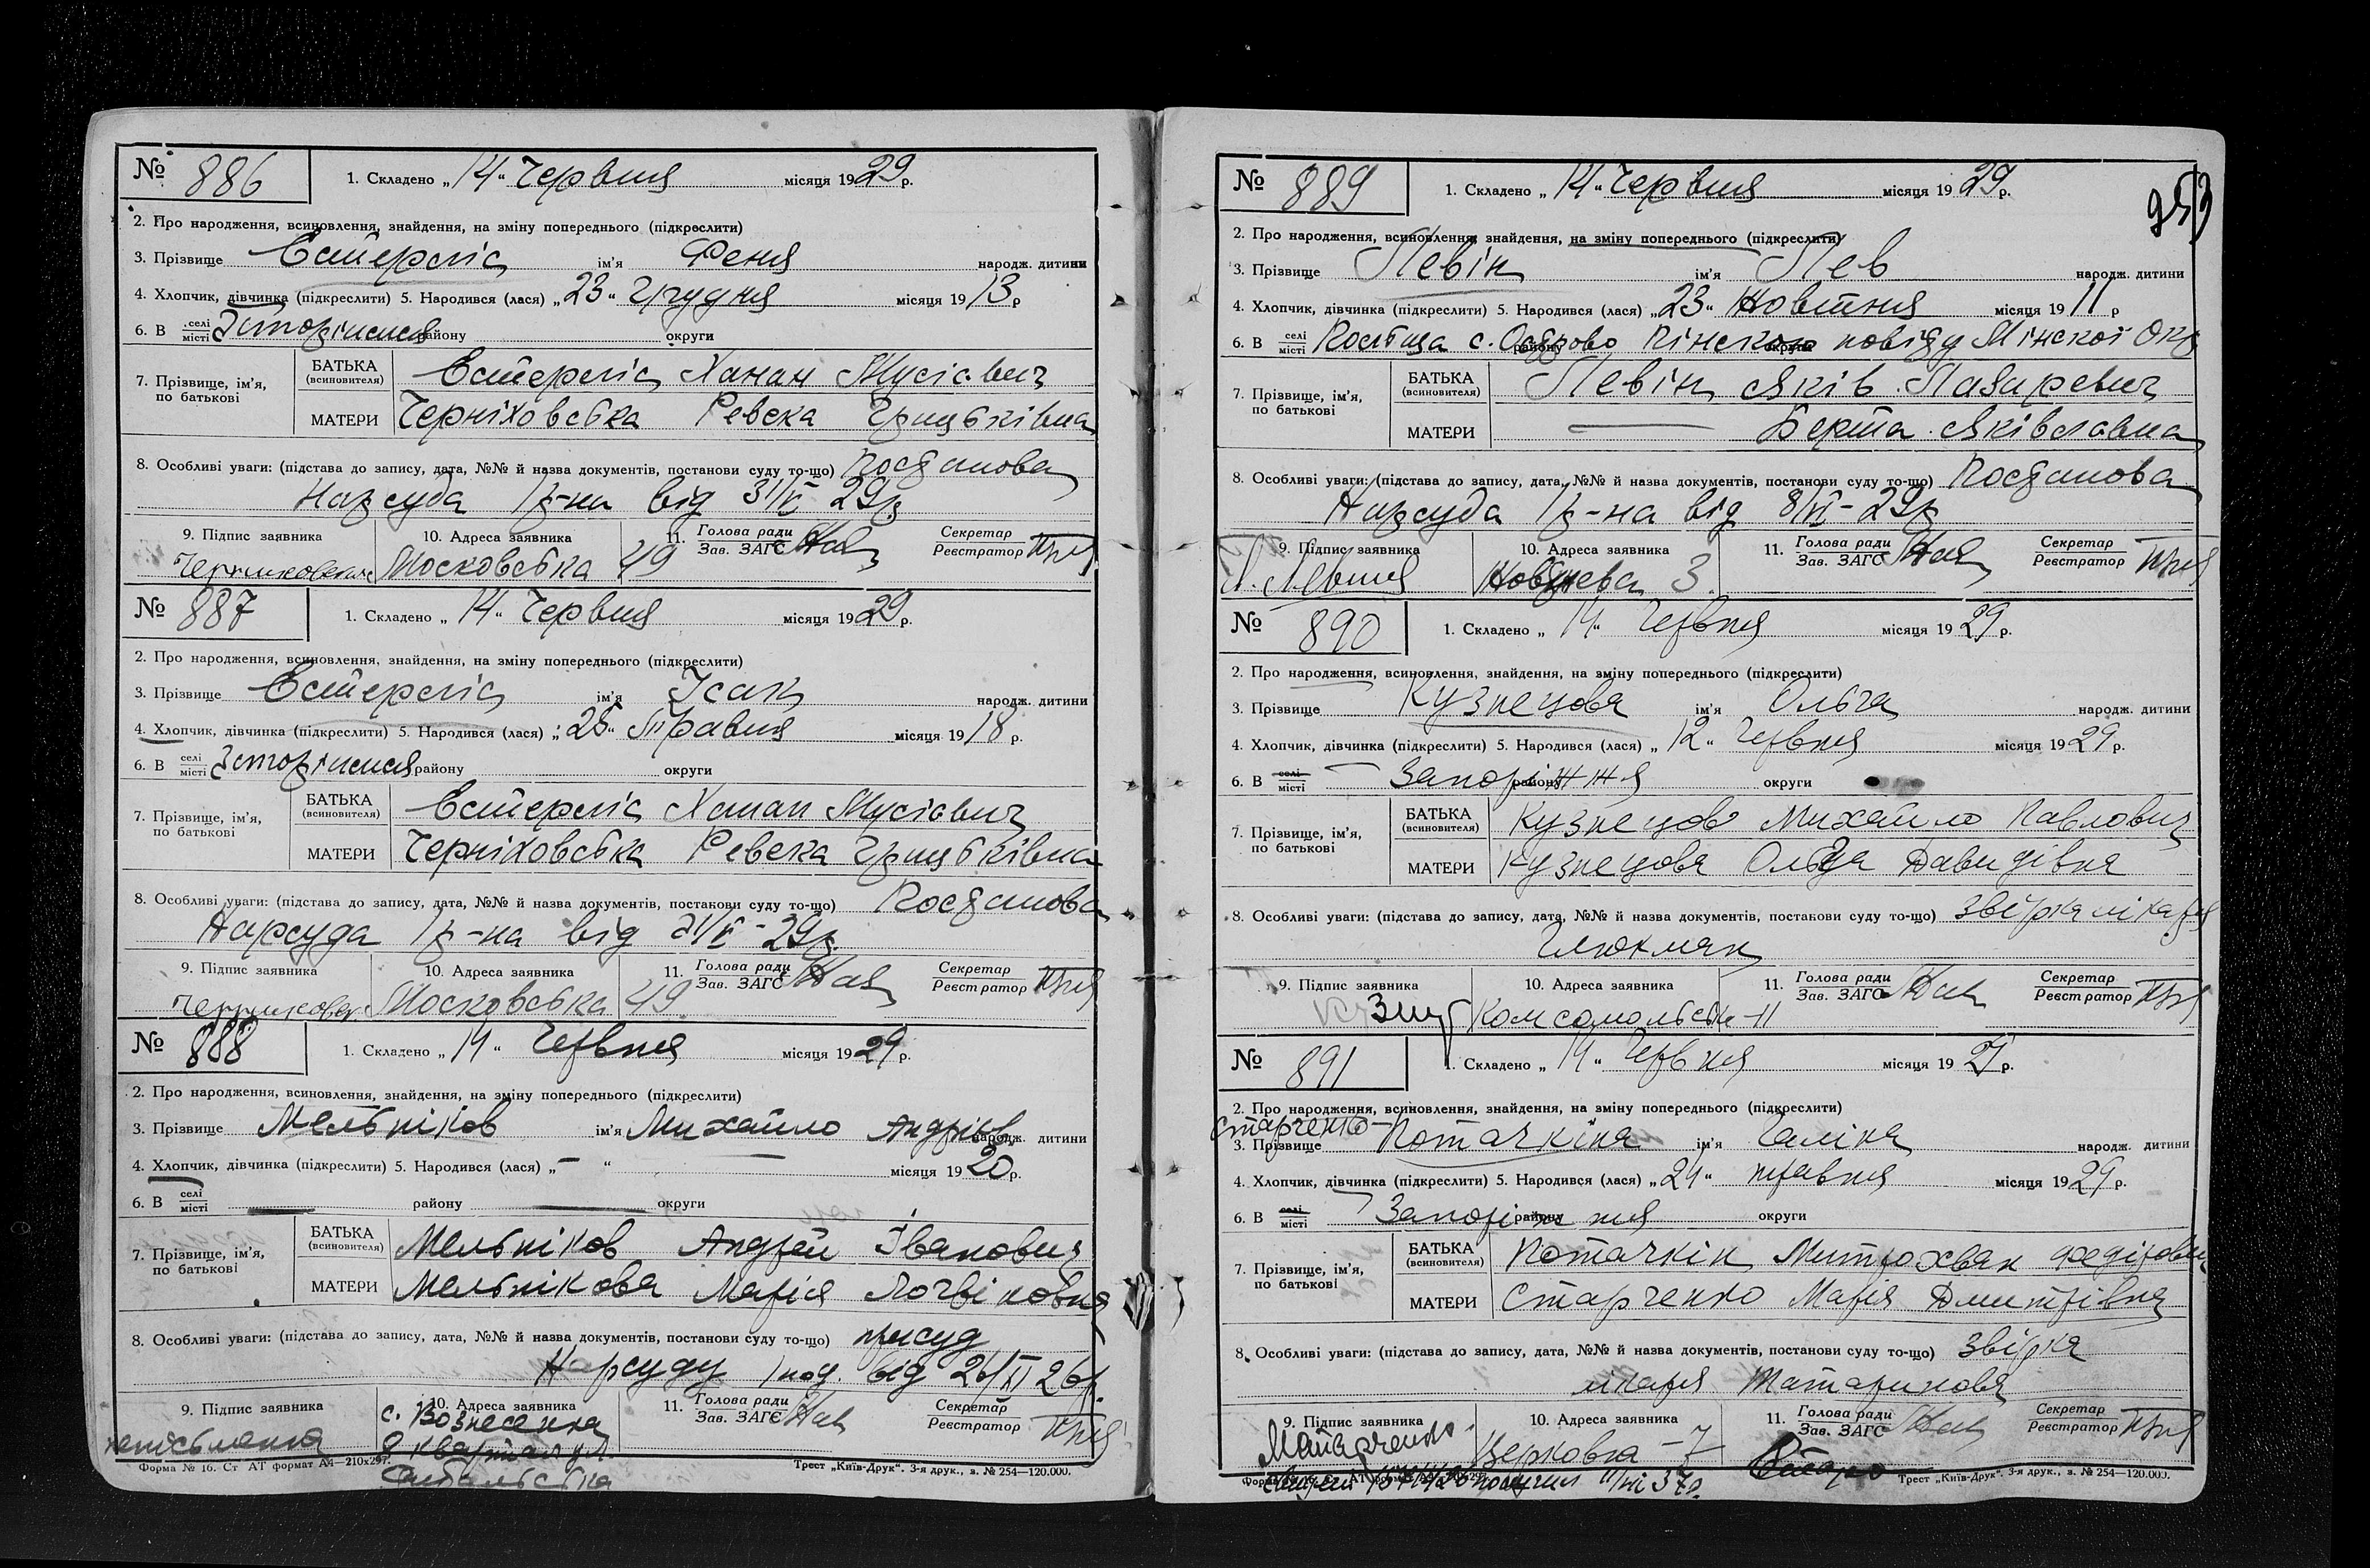 № 886 1. Складено „14“ Червня місяця 1929 р.
2. Про народження, всиновлення, знайдення, на зміну попереднього (підкреслити)
3. Прізвище Естерліс ім'я Феня народж. дитини
4. Хлопчик, дівчинка (підкреслити) 5. Народився (лася) „23“ Грудня місяця 1913 р
6. В селі місті району округи
7. Прізвище, ім'я, по батькові БАТЬКА (всиновителя) Естерліс Ханан Мусієвич
МАТЕРИ Черніховська Ревека
8. Особливі уваги: (підстава до запису, дата, №№ й назва документів, постанови суду то-що) Постанова
Нарсуда 1 р-на від 31/V 29р
9. Підпис заявника 10. Адреса заявника 11. Голова ради Зав. ЗАГС Секретар Реєстратор
Черниховская Московська 49
№ 887 1. Складено „14“ Червня місяця 1929 р.
2. Про народження, всиновлення, знайдення, на зміну попереднього (підкреслити)
3. Прізвище Естерліс ім'я Ісак народж. дитини
4. Хлопчик, дівчинка (підкреслити) 5. Народився (лася) „25“ Травня місяця 1918 р.
6. В селі місті району округи
7. Прізвище, ім'я, по батькові БАТЬКА (всиновителя) Естерліс Ханан Мусієвич
МАТЕРИ Черніховська Ревека
8. Особливі уваги: (підстава до запису, дата, №№ й назва документів, постанови суду то-що) Постанова
Нарсуда 1 р-на від 31/V-29р.
9. Підпис заявника 10. Адреса заявника 11. Голова ради Зав. ЗАГС Секретар Реєстратор
Московська 49
№ 888 1. Складено „14“ Червня місяця 1929 р.
2. Про народження, всиновлення, знайдення, на зміну попереднього (підкреслити)
3. Прізвище Мельніков ім'я Михайло Андрієв народж. дитини
4. Хлопчик, дівчинка (підкреслити) 5. Народився (лася) „—“ місяця 1920 р.
6. В селі місті району округи
7. Прізвище, ім'я, по батькові БАТЬКА (всиновителя) Мельніков Андрей Іванович
МАТЕРИ Мельнікова Марія Логвіновна
8. Особливі уваги: (підстава до запису, дата, №№ й назва документів, постанови суду то-що) присуд
Нарсуду від 26/XI 26р.
9. Підпис заявника 10. Адреса заявника 11. Голова ради Зав. ЗАГС Секретар Реєстратор
с. Вознесенка
неписьменна 8 квартал ул.
Форма № 16. Ст АТ формат А4—210х297. Трест „Київ-Друк“. 3-я друк., з. № 254—120.000.
253
№ 889 1. Складено „14“ Червня місяця 1929 р.
2. Про народження, всиновлення, знайдення, на зміну попереднього (підкреслити)
3. Прізвище Левін ім'я Лев народж. дитини
4. Хлопчик, дівчинка (підкреслити) 5. Народився (лася) „23“ Жовтня місяця 1911 р
6. В селі місті району округи с. Пінского повізду Мінскої Окр
7. Прізвище, ім'я, по батькові БАТЬКА (всиновителя) Левін Яків Лазаревич
МАТЕРИ — Берта Яківславна
8. Особливі уваги: (підстава до запису, дата, №№ й назва документів, постанови суду то-що) Постанова
Нарсуда 1 р-на від 8/VI-29р
9. Підпис заявника 10. Адреса заявника 11. Голова ради Зав. ЗАГС Секретар Реєстратор
3
№ 890 1. Складено „14“ Червня місяця 1929 р.
2. Про народження, всиновлення, знайдення, на зміну попереднього (підкреслити)
3. Прізвище Кузнецова ім'я Ольга народж. дитини
4. Хлопчик, дівчинка (підкреслити) 5. Народився (лася) „12“ Червня місяця 1929 р.
6. В селі місті Запоріжжя району округи
7. Прізвище, ім'я, по батькові БАТЬКА (всиновителя) Кузнецов Михайло Павлович
МАТЕРИ Кузнецова Ольга Давидівна
8. Особливі уваги: (підстава до запису, дата, №№ й назва документів, постанови суду то-що) звірка лікаря
Глюкман
9. Підпис заявника 10. Адреса заявника 11. Голова ради Зав. ЗАГС Секретар Реєстратор
Комсомольська-11
№ 891 1. Складено „14“ Червня місяця 1929 р.
2. Про народження, всиновлення, знайдення, на зміну попереднього (підкреслити)
Старченко—
3. Прізвище Потачкіна ім'я Галіна народж. дитини
4. Хлопчик, дівчинка (підкреслити) 5. Народився (лася) „24“ травня місяця 1929 р.
6. В селі місті Запоріжжя району округи
7. Прізвище, ім'я, по батькові БАТЬКА (всиновителя) Потачкін Митрохван Федірович
МАТЕРИ Старченко Марія Дмитрівна
8. Особливі уваги: (підстава до запису, дата, №№ й назва документів, постанови суду то-що) звірка
лікаря Татаринова
9. Підпис заявника 10. Адреса заявника 11. Голова ради Зав. ЗАГС Секретар Реєстратор
Церковна-7
Трест „Київ-Друк“. 3-я друк., з. № 254—120.000.